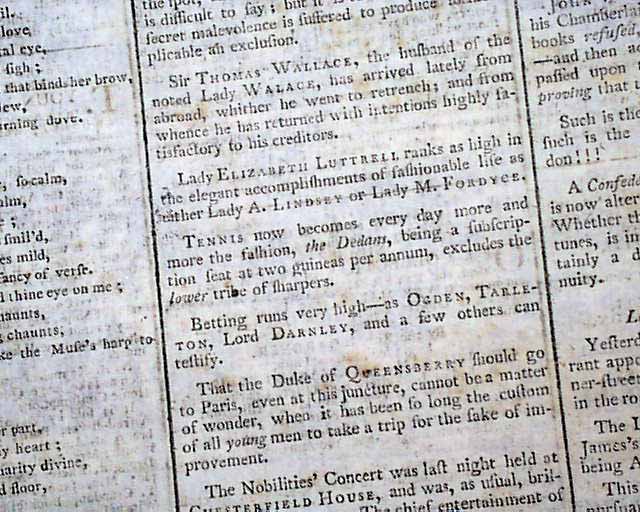 il.
love,
tal eye,
sigh ;
that binds her brow,
iew,
urning dove.
, so calm,
alm,
;
smil'd,
es mild,
fancy of verse.
thine eye on me ;
haunts,
chaunts,
ke the Muse's harp to
r part,
y heart ;
harity divine,
d floor,
the spot,
is difficult to say ; but it is
secret malevolence is suffered to produce
plicable an exclusion.
Sir THOMAS WALLACE, the husband of the
noted Lady WALACE, has arrived lately from
abroad, whither he went to retrench; and from
whence he has returned with intentions highly sa-
tisfactory to his creditors.
Lady ELIZABETH LUTTRELL ranks as high in
the elegant accomplishments of fashionable life as
either Lady A. LINDSEY or Lady M. FORDYCE.
TENNIS now becomes every day more and
more the fashion, the Dedans, being a subscrip-
tion seat at two guineas per annum, excludes the
lower tribe of sharpers.
Betting runs very high—as OGDEN, TARLE-
TON, Lord DARNLEY, and a few others can
testify.
That the Duke of QUEENSBERRY should go
to Paris, even at this juncture, cannot be a matter
of wonder, when it has been so long the custom
of all young men to take a trip for the sake of im-
provement.
The Nobilities' Concert was last night held at
CHESTERFIELD HOUSE, and was, as usual, bril-
The chief entertainment of
his Chamberla
books refused
—and then a
passed upon
proving that
Such is the
such is the
don!!!
A Confed
is now alter
Whether th
tunes, is in
tainly a d
nuity.
L
Yesterd
rant appe
ner-stree
in the ro
The L
James's
being A
This
pursua